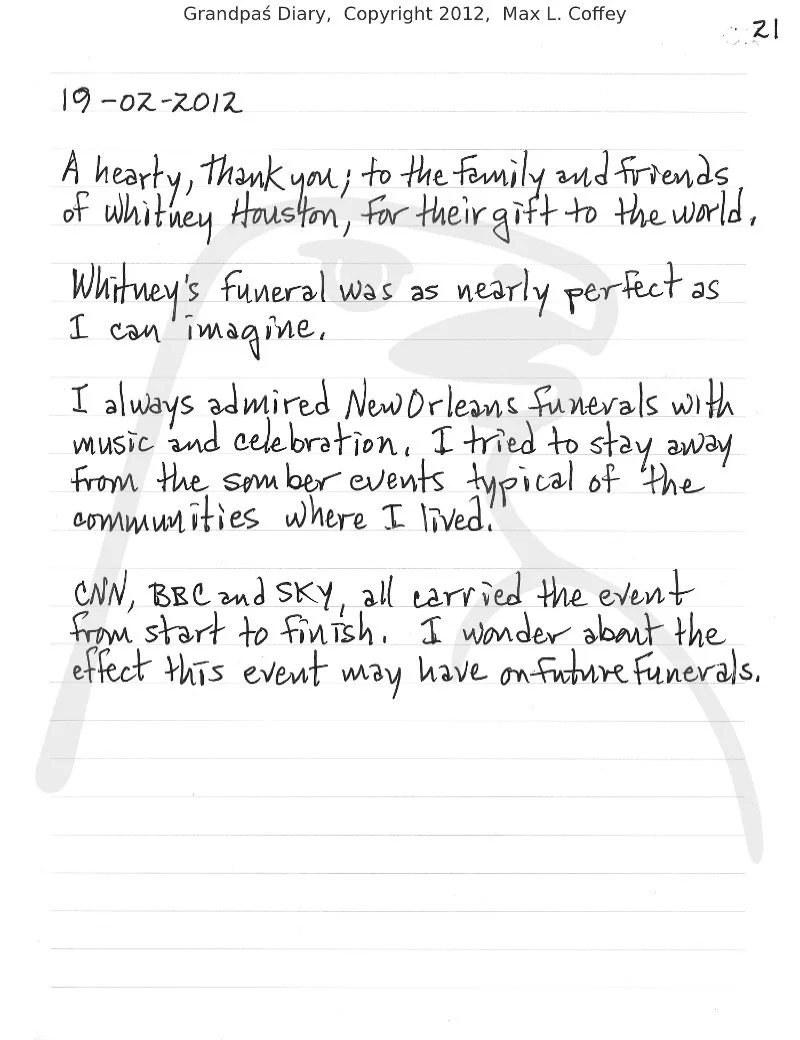 Grandpaś Diary, Copyright 2012, Max L. Coffey
21
19-02-2012
A hearty, Thank you; to the family and friends
of Whitney Houston, for their gift to the world.
Whitney's funeral was as nearly perfect as
I can imagine.
I always admired New Orleans funerals with
music and celebration. I tried to stay away
from the somber events typical of the
communities where I lived.
CNN, BBC and SKY, all carried the event
from start to finish. I wonder about the
effect this event may have on future funerals.